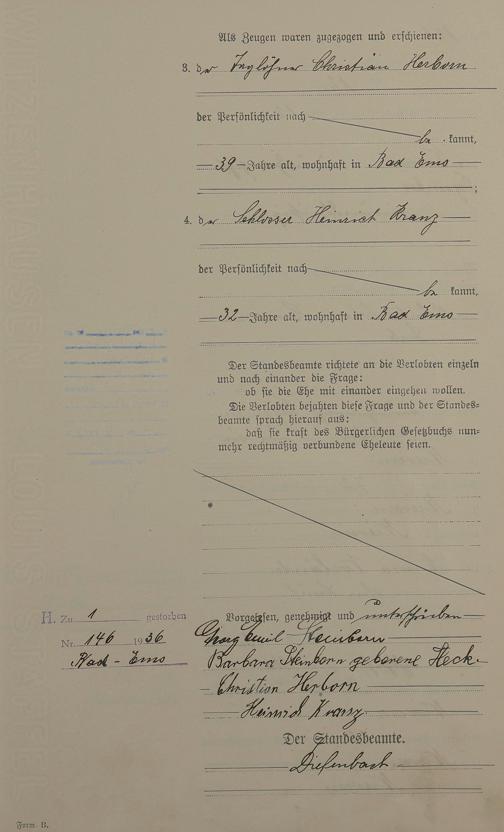 Als Zeugen waren zugezogen und erschienen:
3. der Taglöhner Christian Herborn
der Persönlichkeit nach
be kannt,
39 Jahre alt, wohnhaft in Bad Ems
;
4. der Schlosser Heinrich Kranz
der Persönlichkeit nach
be kannt,
32 Jahre alt, wohnhaft in Bad Ems
Der Standesbeamte richtete an die Verlobten einzeln
und nach einander die Frage:
ob sie die Ehe mit einander eingehen wollen.
Die Verlobten bejahten diese Frage und der Standes-
beamte sprach hierauf aus:
daß sie kraft des Bürgerlichen Gesetzbuchs nun-
mehr rechtmäßig verbundene Eheleute seien.
H. Zu 1 gestorben
Nr. 146 1936
Bad-Ems
Vorgelesen, genehmigt und unterschrieben
Georg Emil Steinborn
Barbara Steinborn geborene Heck.
Christian Herborn
Heinrich Kranz
Der Standesbeamte.
Diefenbach
Form. B.